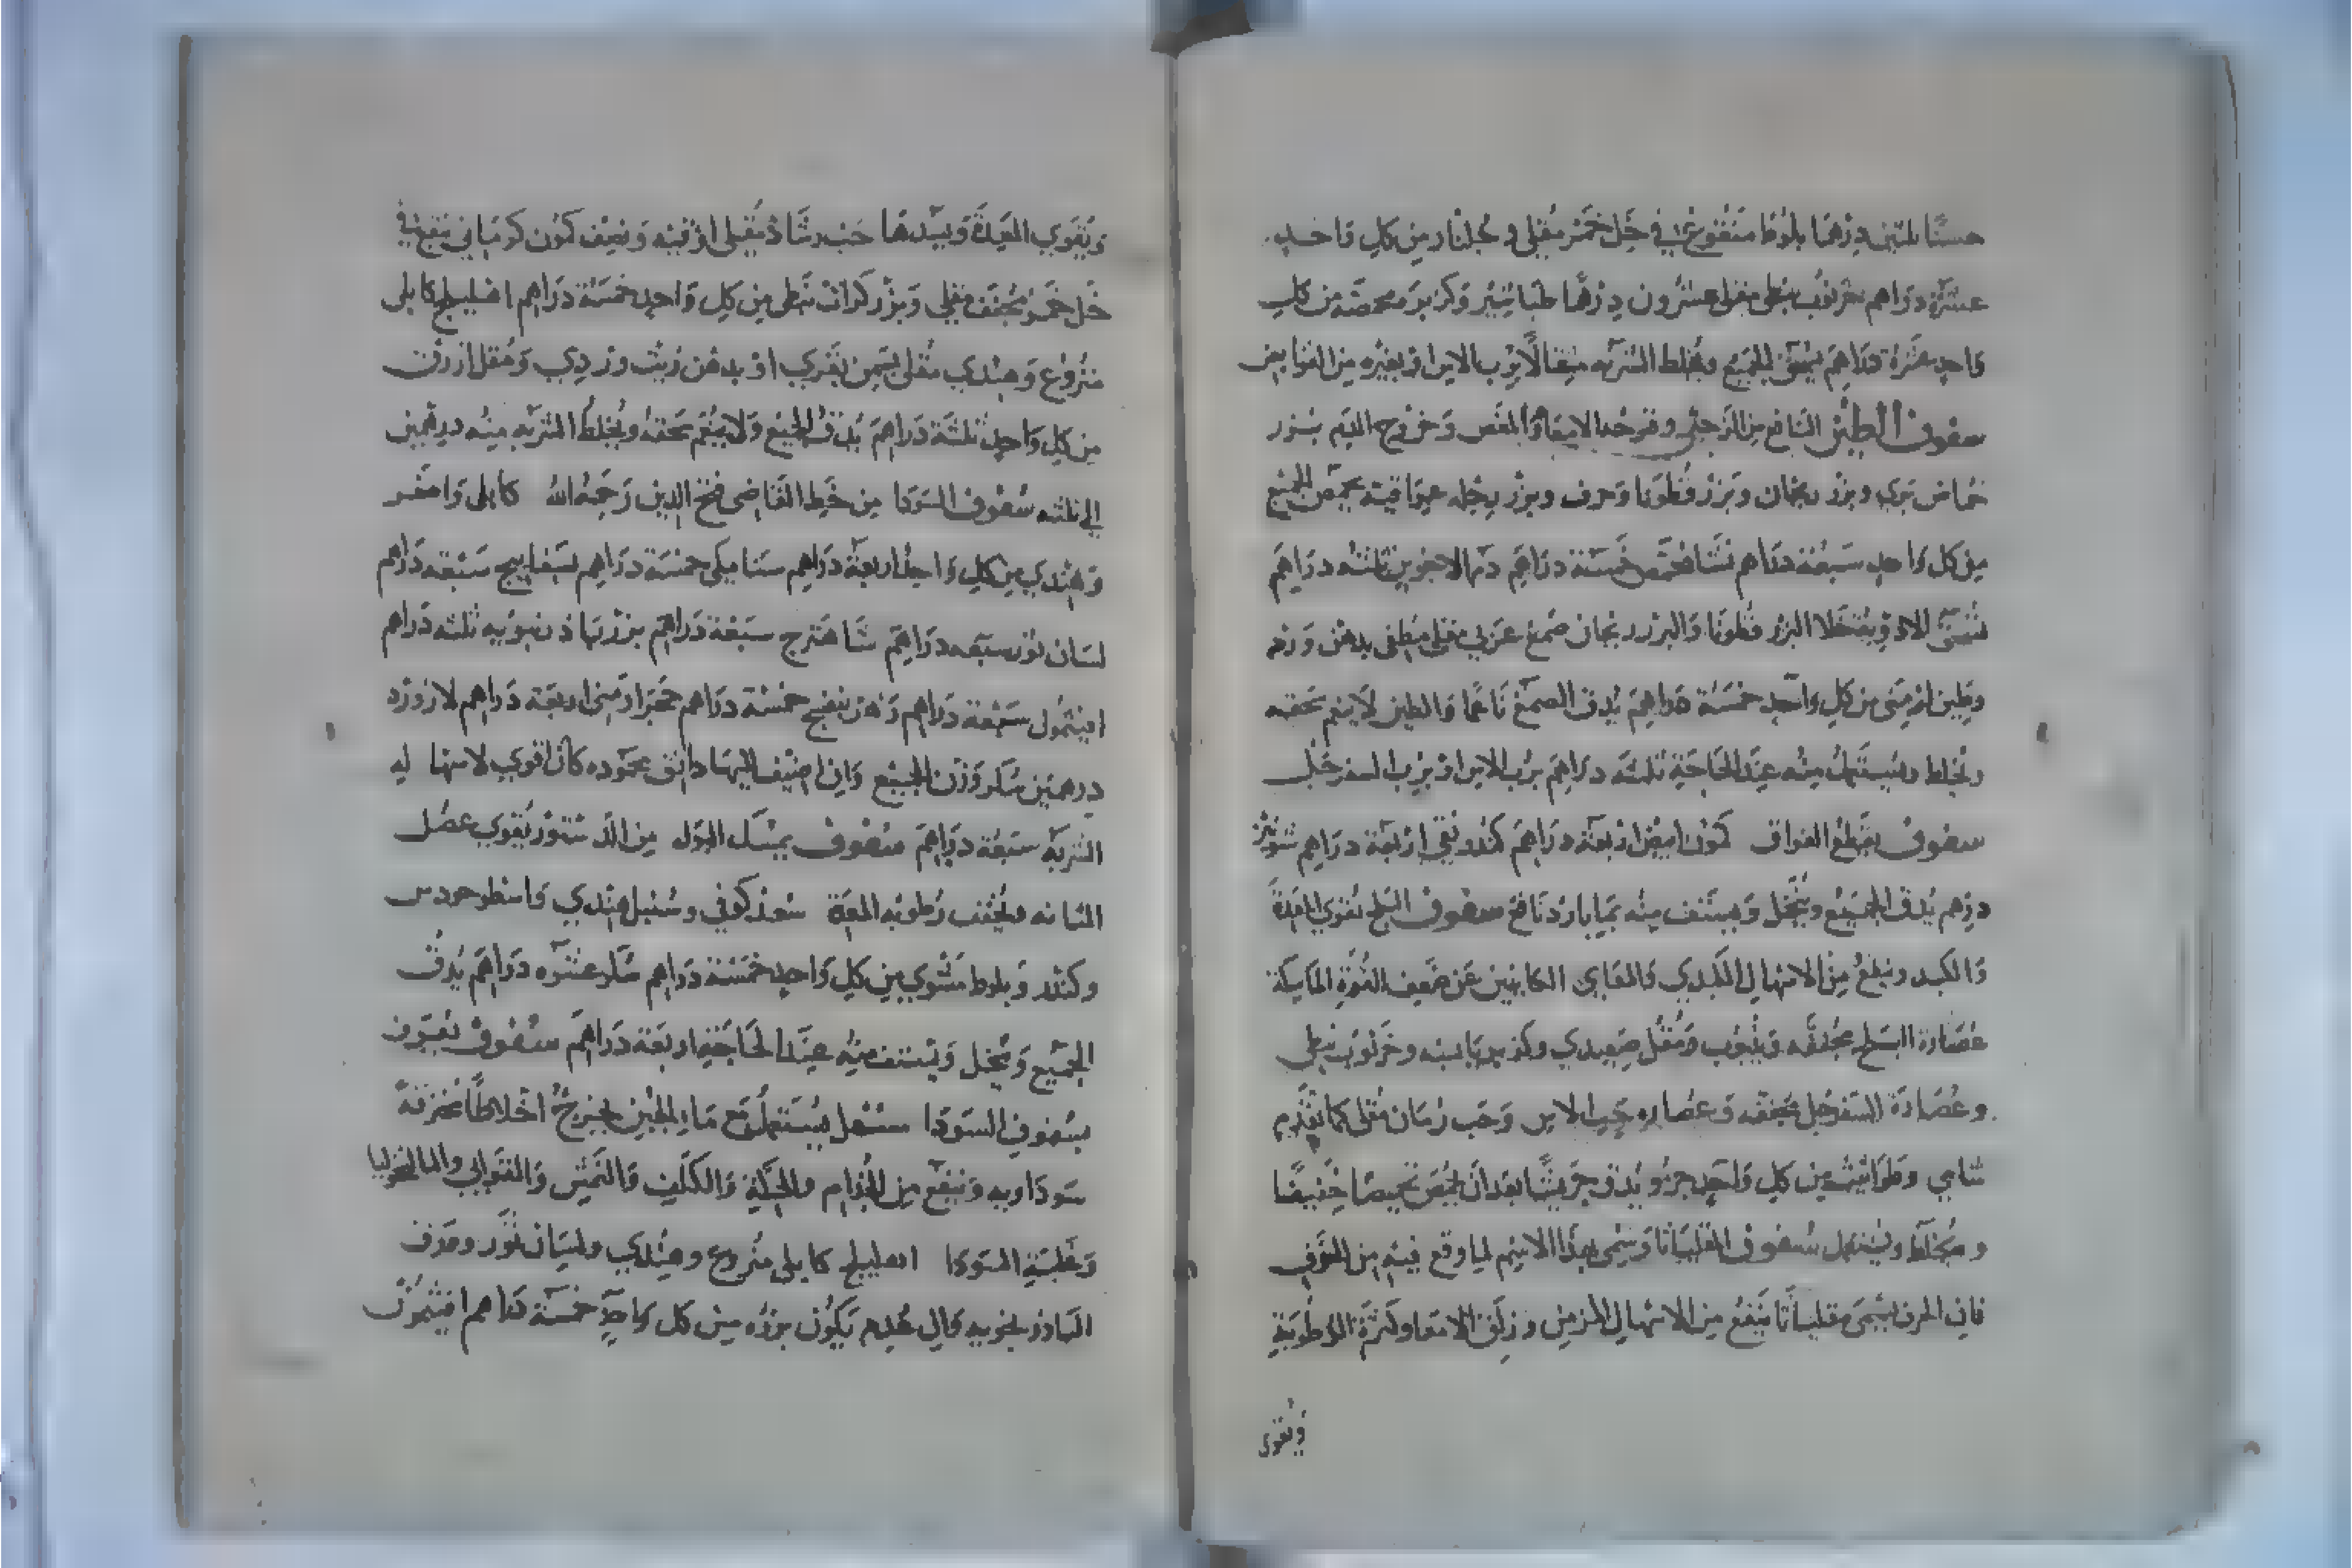 حسنًا ثلثين درهمًا بلوط منقوع في خل خمر مقلي وجلنار من كل واحد
عشرة دراهم خرنوب نبطي مقلي عشرون درهمًا طباشير وكزبرة محمصة من كل
واحد عشرة دراهم يدق الجميع ويخلط الشربه مثقالا برب الاس او بغيره من القوابض
سفوف الطين النافع من الزحير وقروح الامعاء والمغص وخروج الدم بزر
حماض بري وبزر ريحان وبزر قطونا وحرف وبزر رجله عراقيه يحمص الجميع
من كل واحد سبعة دراهم نشا محمص خمسة دراهم دم الاخوين ثلثه دراهم
الا البزر قطونا والبزر ريحان صمغ عربي مقلي مطفى بدهن ورد
وطين ارمني من كل واحد خمسة دراهم يدق الصمغ ناعما والطين لا ينعم سحقه
ويخلط ويستعمل منه عند الحاجة ثلثه دراهم برب الاس او برب السفرجل
سفوف يقطع الفواق كمون ابيض اربعة دراهم كندر نقي اربعة دراهم شونيز
درهم يدق الجميع وينخل ويستف منه بماء بارد نافع سفوف البلح يقوي المعدة
والكبد وينفع من الاسهال الكبدي والمعاي الكاينين عن ضعف القوة الماسكة
عصارة البلح مجففه وينبوب ومقل صعيدي وكزبره يابسه وخرنوب نبطي
وعصارة السفرجل مجففه وعصاره حب الاس وحب رمان مقلي كما تقدم
شامي وطراثيث من كل واحد جزو يدق جريشًا بعد ان يحمص تحميصا خفيفا
ويخلط ويستعمل سفوف المقلياثا وسمي بهذا الاسم لما وقع فيه من الحرف
فان الحرف يسمى مقلياثا ينفع من الاسهال المزمن وزلق الامعا وكثرة الرطوبة
ويقوى
ويقوي المعدة ويشدها حب رشاد مقلي اوقيه ونصف كمون كرماني منقع في
خل خمر مجفف مقلي وبزر كراث نبطي من كل واحد خمسة دراهم اهليلج كابلي
منزوع وهندي مقلي بسمن بقري او بدهن زيت وردي ومقل ازرق
من كل واحد ثلثة دراهم يدق الجميع ولا ينعم سحقه ويخلط الشربه منه درهمين
الي ثلثه سفوف السودا من خط القاضي فتح الدين رحمه الله كابلي واصفر
وهندي من كل واحد اربعة دراهم سنا مكي خمسة دراهم بسفايج سبعه دراهم
لسان ثور سبعه دراهم شاهترج سبعة دراهم بزر باذرنبويه ثلثه دراهم
افيثمون سبعة دراهم زهر بنفسج خمسة دراهم حجر ارمني اربعة دراهم لازورد
درهمين سكر وزن الجميع وان اضيف اليها دانق محموده كان اقوي لاسهاله
الشربه سبعة دراهم سفوف يمسك البول من الدستور يقوي عضل
المثانه ويجفف رطوبه المعدة سعد كوفي وسنبل هندي واسطوخودس
وكندر وبلوط مشوي من كل واحد خمسة دراهم سكر عشره دراهم يدق
الجميع وينخل ويستف منه عند الحاجة اربعة دراهم سفوف يعرف
بسفوف السودا مسهل يستعمل مع ماء الجبن يخرج اخلاطًا محترقة
سوداويه وينفع من الجذام والحكة والكلف والنمش والقوابي والمالنخوليا
وغلبة السودا اهليلج كابلي منزوع وهندي ولسان ثور وورق
الباذرنجويه فان عدم يكون بزره من كل واحد خمسة دراهم افيثمون